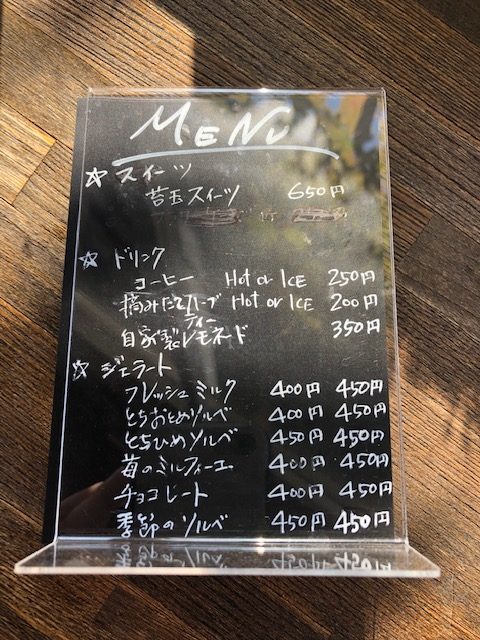 MENU
☆ スイーツ
苔玉スイーツ 650円
☆ ドリンク
コーヒー Hot or ICE 250円
摘みたてハーブティー Hot or ICE 200円
自家製レモネード 350円
☆ ジェラート
フレッシュミルク 400円 450円
とちおとめソルベ 400円 450円
とちひめソルベ 450円 450円
苺のミルフィーユ 400円 450円
チョコレート 400円 450円
季節のソルベ 450円 450円